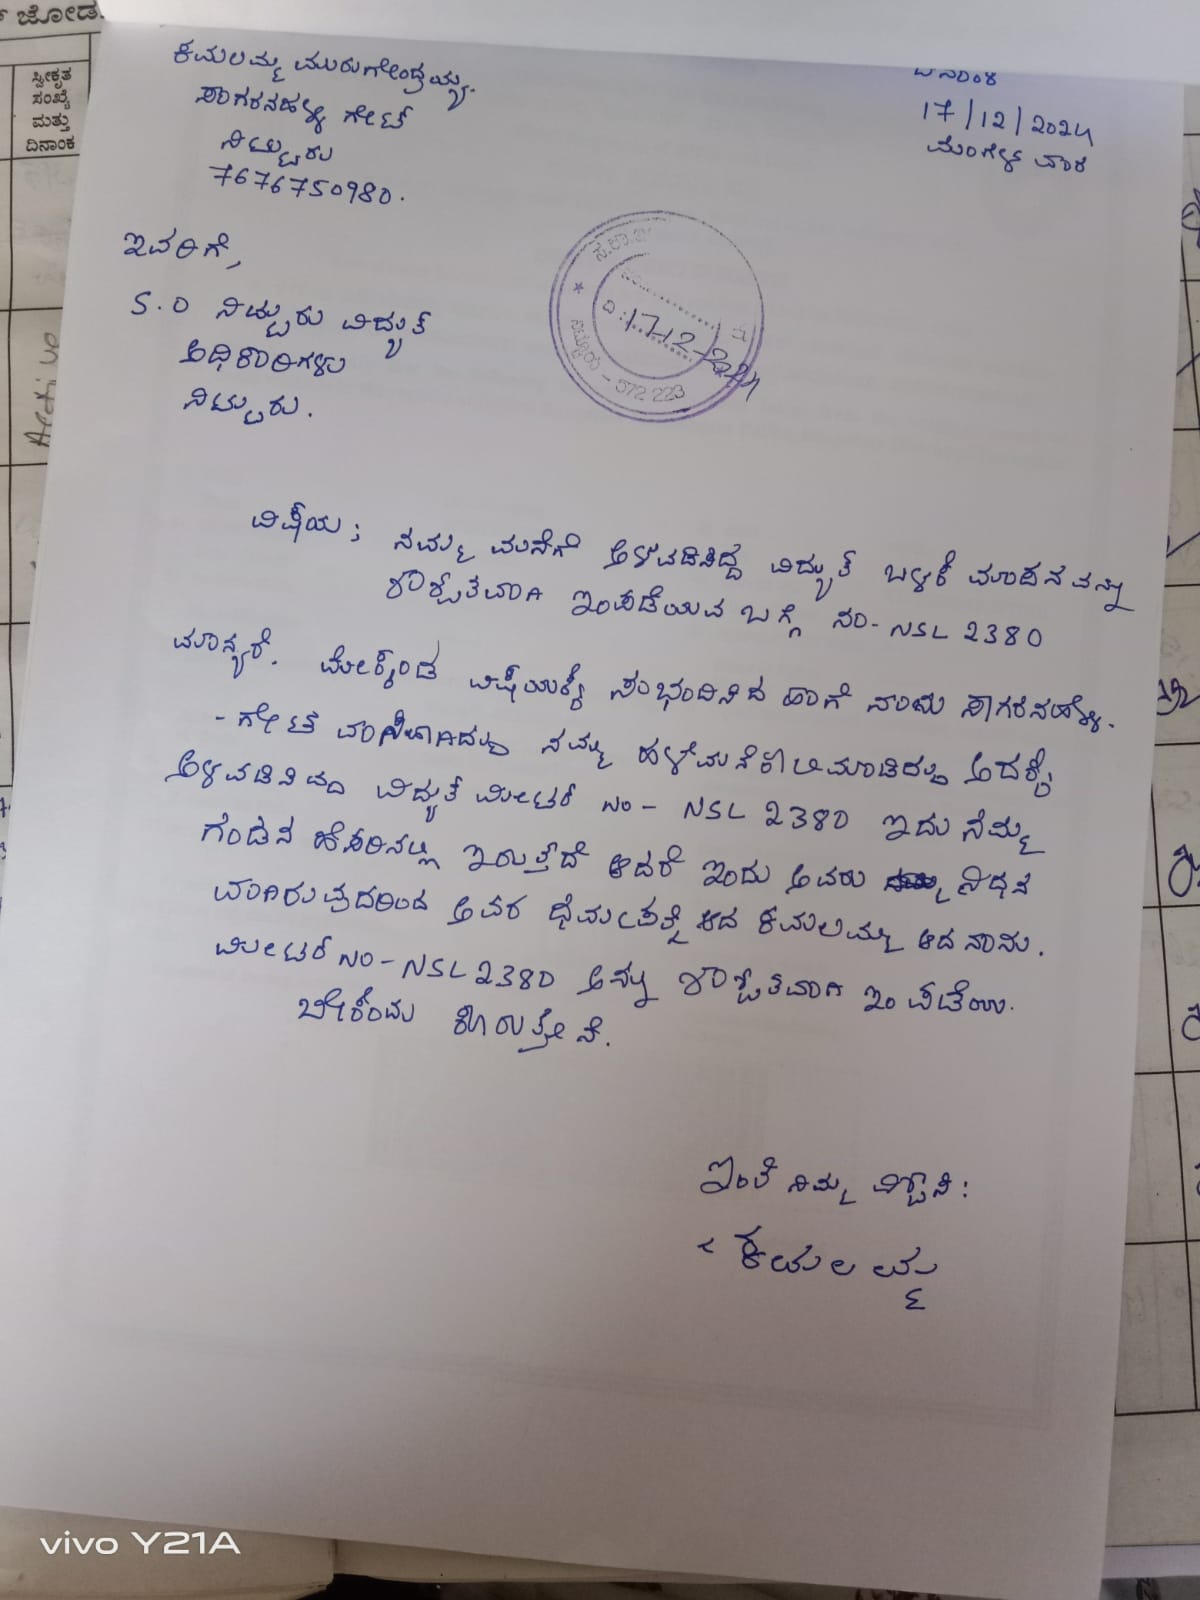 ಜೋಡ.
ಸ್ವೀಕೃತ
ಸಂಖ್ಯೆ
ಮತ್ತು
ದಿನಾಂಕ
ಕಮಲಮ್ಮ ಮುರುಗೇಂದ್ರಯ್ಯ.
ಸಾಗರನಹಳ್ಳಿ ಗೇಟ್
ನಿಟ್ಟೂರು
7676750980.
ದಿನಾಂಕ
17/12/2024
ಮಂಗಳ ವಾರ
ಇವರಿಗೆ,
S.O ನಿಟ್ಟೂರು ವಿದ್ಯುತ್
ಅಧಿಕಾರಿಗಳು
ನಿಟ್ಟೂರು.
ದಿ: 17-12-2024
ನಿಟ್ಟೂರು - 572 223
ವಿಷಯ; ನಮ್ಮ ಮನೆಗೆ ಅಳವಡಿಸಿದ್ದ ವಿದ್ಯುತ್ ಬಳಕೆ ಮಾಪನವನ್ನು
ಶಾಶ್ವತವಾಗಿ ಇಂಪಡೆಯುವ ಬಗ್ಗೆ ನಂ- NSL 2380
ಮಾನ್ಯರೆ. ಮೇಲ್ಕಂಡ ವಿಷಯಕ್ಕೆ ಸಂಭಂದಿಸಿದ ಹಾಗೆ ನಾವು ಸಾಗರನಹಳ್ಳಿ.
- ಗೇಟ್ ವಾಸಿಯಾಗಿದ್ದು ನಮ್ಮ ಹಳೆಮನೆ ಖಾಲಿಮಾಡಿದ್ದು ಅದಕ್ಕೆ
ಅಳವಡಿಸಿದ್ದ ವಿದ್ಯುತ್ ಮೀಟರ್ ನಂ - NSL 2380 ಇದು ನಮ್ಮ
ಗಂಡನ ಹೆಸರಿನಲ್ಲಿ ಇರುತ್ತದೆ ಆದರೆ ಇಂದು ಅವರು ನಿಧನ
ವಾಗಿರುವುದರಿಂದ ಅವರ ಧರ್ಮಪತ್ನಿ ಆದ ಕಮಲಮ್ಮ ಆದ ನಾನು.
ಮೀಟರ್ ನಂ - NSL 2380 ಅನ್ನು ಶಾಶ್ವತವಾಗಿ ಇಂಪಡೆಯ.
ಬೇಕೆಂದು ಕೋರುತ್ತೇನೆ.
ಇಂತಿ ನಿಮ್ಮ ವಿಶ್ವಾಸಿ:
ಕಮಲಮ್ಮ
vivo Y21A